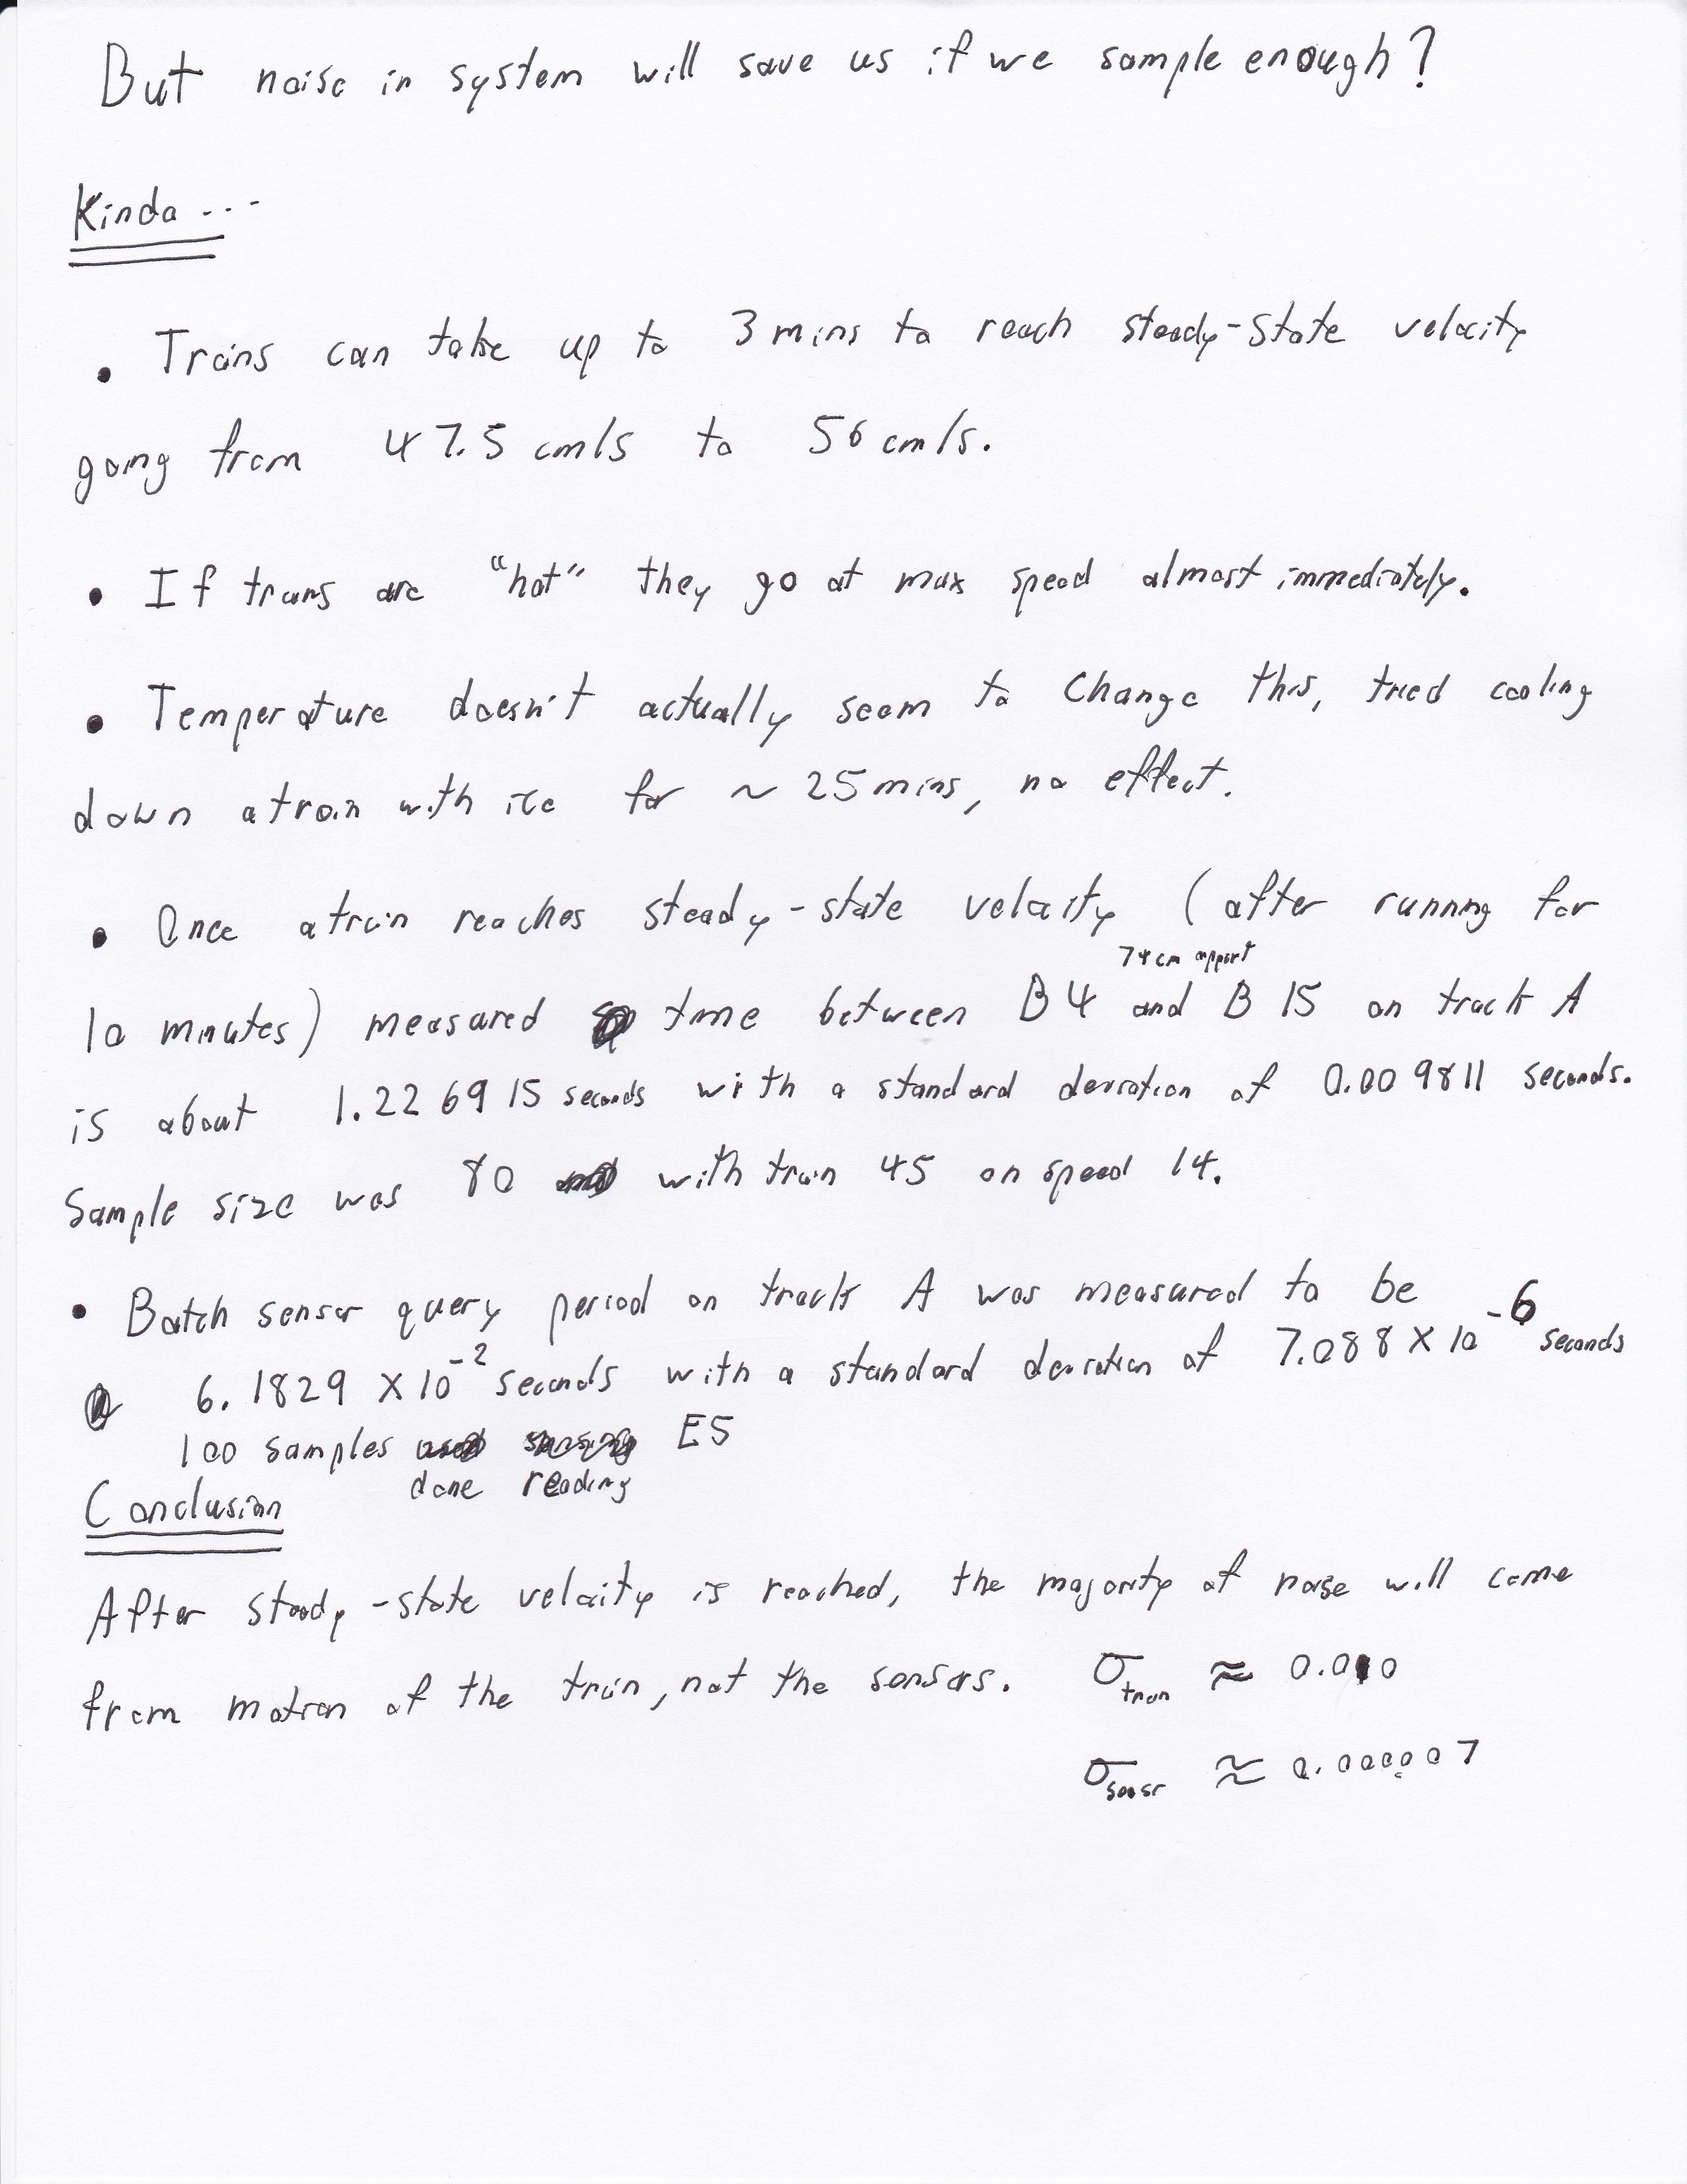 But noise in system will save us if we sample enough?
Kinda ...
• Trains can take up to 3 mins to reach steady-state velocity
going from 47.5 cm/s to 56 cm/s.
• If trains are "hot" they go at max speed almost immediately.
• Temperature doesn't actually seem to change this, tried cooling
down a train with ice for ~ 25 mins, no effect.
• Once a train reaches steady-state velocity (after running for
74 cm appart
10 minutes) measured time between B4 and B15 on track A
is about 1.226915 seconds with a standard deviation of 0.009811 seconds.
Sample size was 80 with train 45 on speed 14.
• Batch sensor query period on track A was measured to be
6.1829 X 10^-2 seconds with a standard deviation of 7.088 X 10^-6 seconds
100 samples E5
done reading
Conclusion
After steady-state velocity is reached, the majority of noise will come
from motion of the train, not the sensors. σ train ≈ 0.010
σ sensor ≈ 0.000007